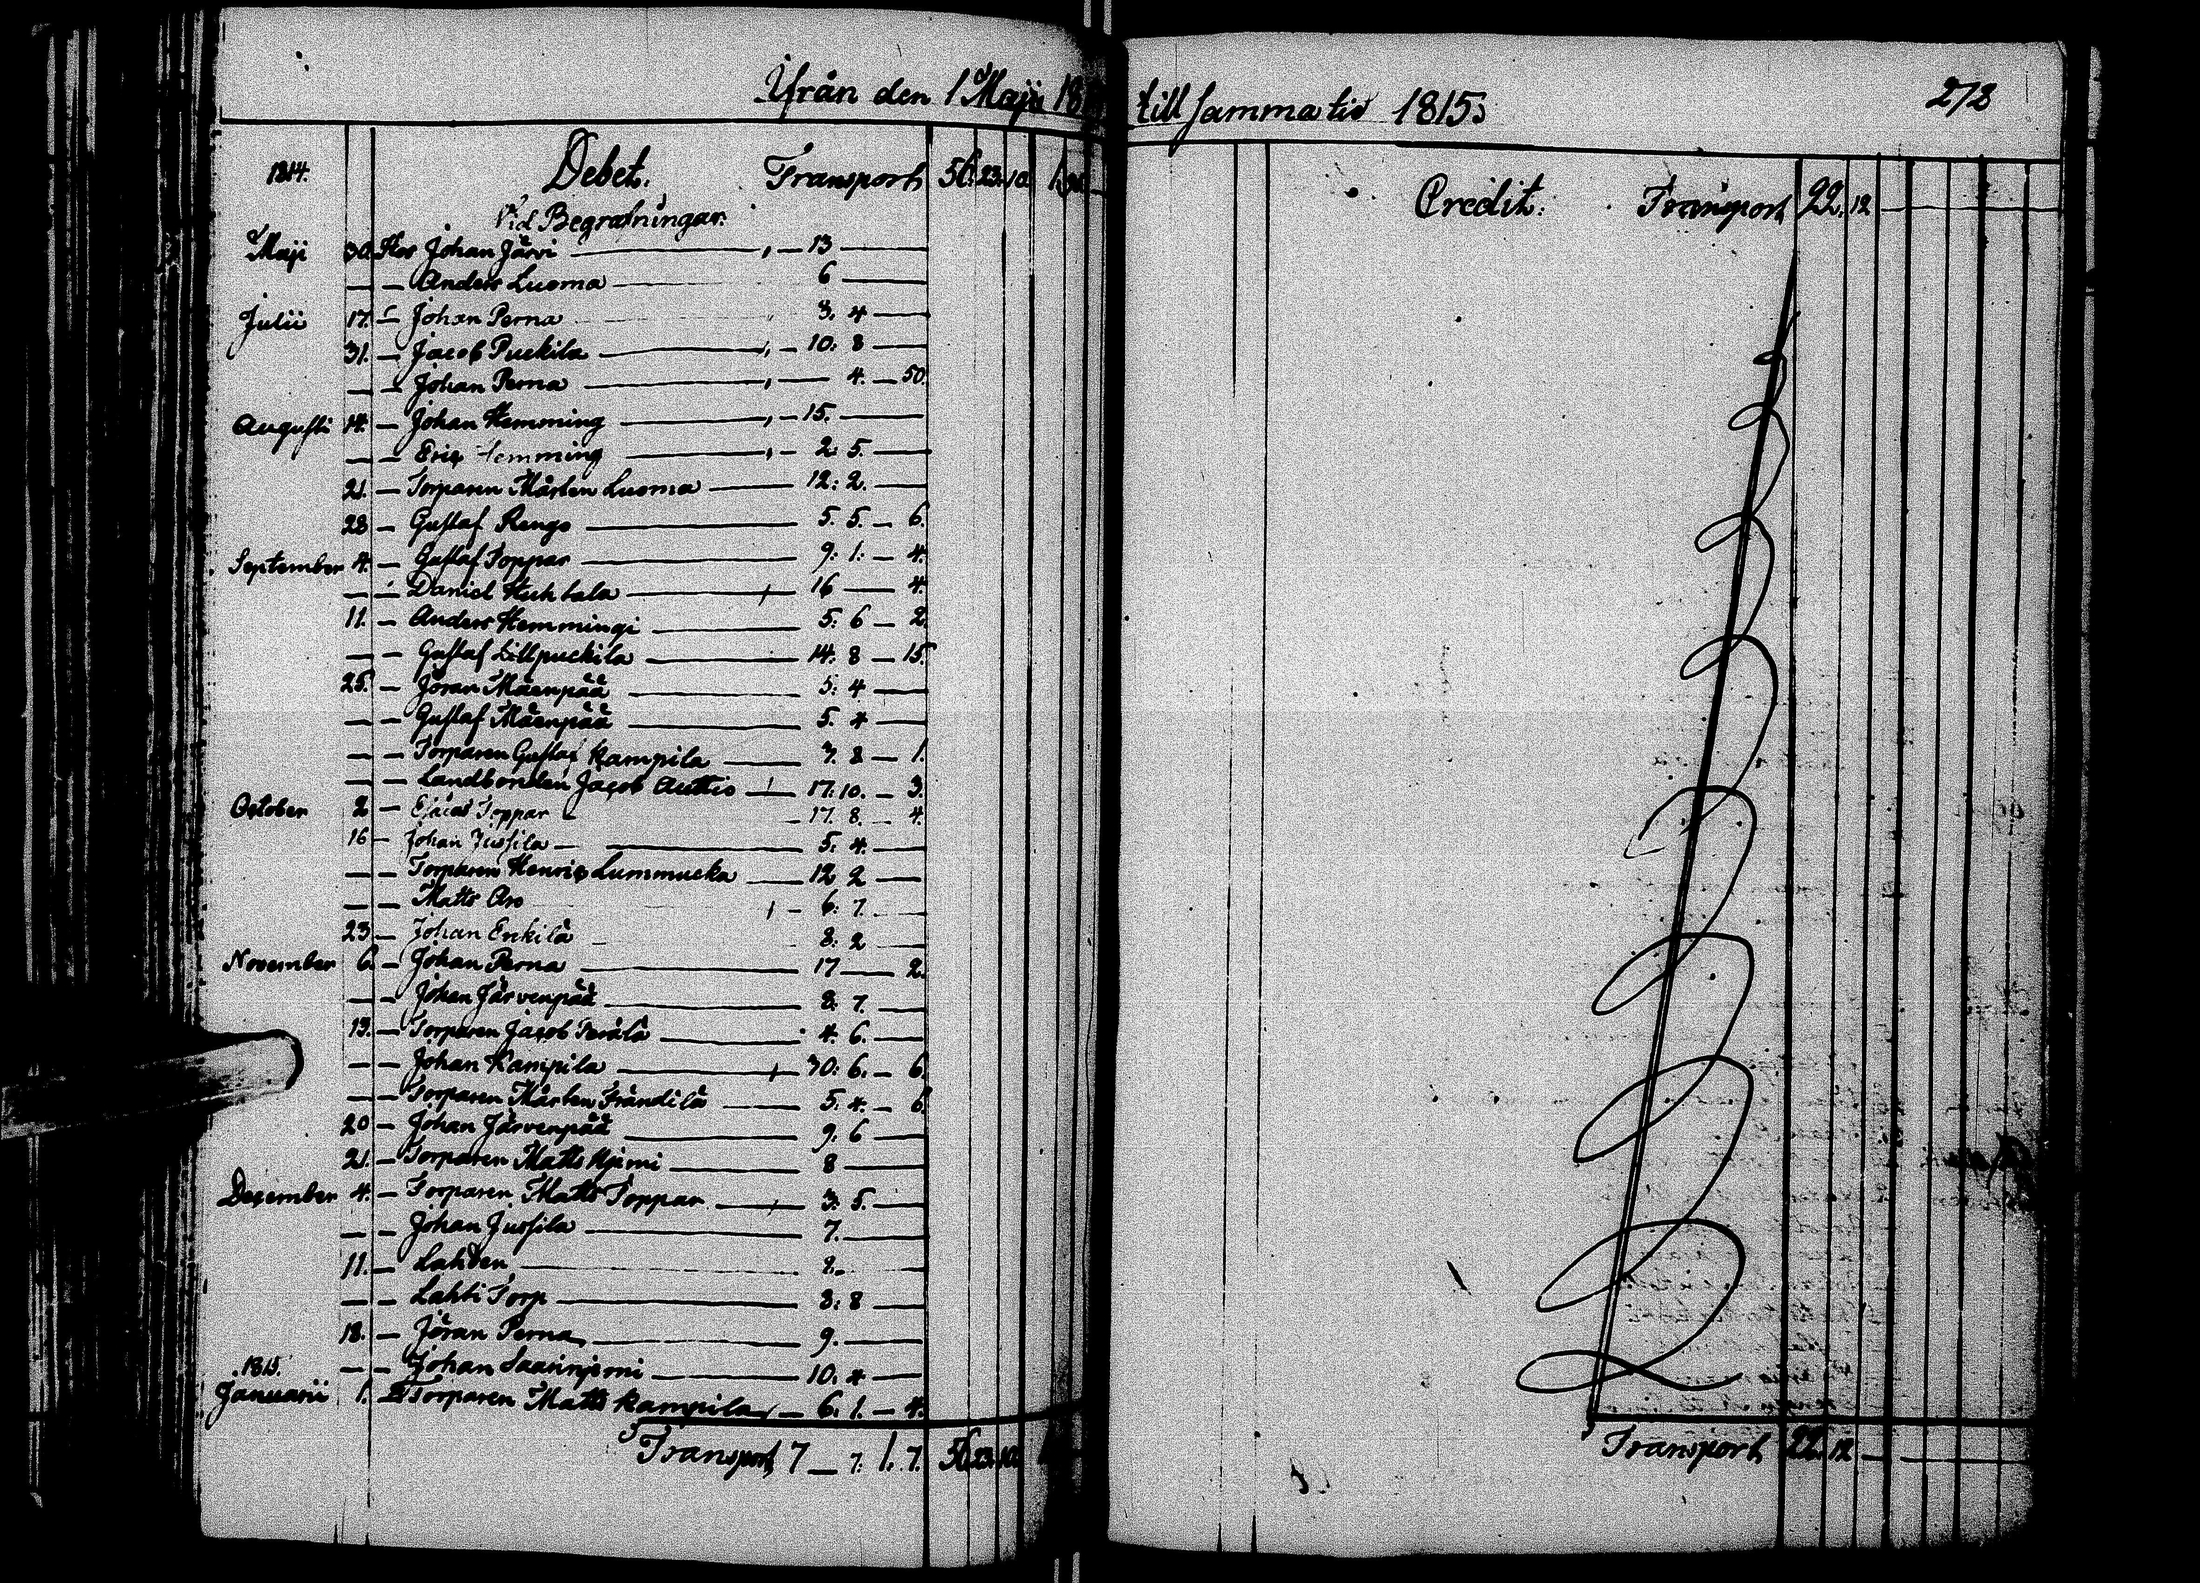 Ifrån den 1 Maji 18
1814. Debet. Transport 56. 23. 10
Vid Begrafningar.
Maji 30. Hos Johan Järvi — 13 —
— — Anders Luoma 6 —
Julii 17. — Johan Perna 3. 4 —
31. — Jacob Puckila — 10: 8 —
— — Johan Perna — 4. — 50.
Augusti 14. — Johan Hemming — 15. —
— — Eric Hemming — 2: 5. —
21. — Torparen Mårten Luoma — 12: 2. —
28 — Gustaf Rengo — 5. 5. — 6.
September 4. — Gustaf Toppar — 9: 1: — 4.
— — Daniel Huhtala — 16 — 4.
11. — Anders Hemmingi — 5: 6 — 2.
— — Gustaf Lillpuckila — 14. 8 — 15.
25. — Jöran Mäenpää — 5: 4 —
— — Gustaf Mäenpää — 5. 4 —
— — Torparen Gustaf Kampila — 3. 8 — 1.
— — Landbonden Jacob Auttio — 17: 10. — 3.
October 2 — Toppar — 17. 8. — 4.
16 — Johan Jussila — 5. 4. —
— — Torparen Henric Lummucka — 12 2 —
— — Matts Aro — 6: 7. —
23. — Johan Erkilä — 8: 2 —
November 6. — Johan Perna — 17 — 2.
— — Johan Järvenpää — 8: 7. —
13. — Torparen Jacob Perälä 4. 6. —
— — Johan Kampila — 30: 6. — 6.
— — Torparen Mårten Frändilä — 5. 4. — 6.
20 — Johan Järvenpää — 9. 6 —
21. — Torparen Matts Njemi — 8 —
December 4. — Torparen Matts Toppar — 3: 5. —
— — Johan Jussila — 7. —
11. — Lahden — 2. —
— — Lahti Torp — 8: 8 —
18. — Jöran Perna — 9. —
1815. — — Johan Saarinjemi — 10: 4 —
Januarii 1. — Torparen Matts Kampila — 6. 1. — 4.
Transport 7 — 7: 1. 7. 56. 23. 10.
till samma tid 1815.
278
Credit. Transport 22. 12 —
Transport 22. 12 —